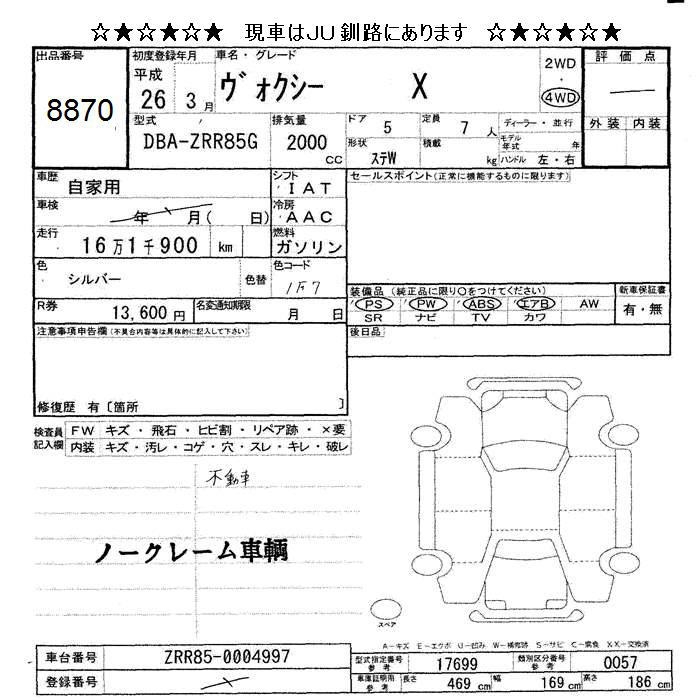 ☆★☆★☆★ 現車はJU釧路にあります ☆★☆★☆★
出品番号
8870
初度登録年月
平成
26 3月
車名・グレード
ヴォクシー X
2WD
・
4WD
評価点
外装 内装
型式
DBA-ZRR85G
排気量
2000
CC
ドア
5
定員
7人
ディーラー・並行
モデル年式 年
形状
ステW
積載
kg
ハンドル 左・右
車歴
自家用
シフト
IAT
セールスポイント(正常に機能するものに限ります)
車検
年 月( 日)
冷房
AAC
走行
16万1千900 km
燃料
ガソリン
色
シルバー
色替
色コード
1F7
装備品(純正品に限り○をつけてください)
PS PW ABS エアB AW
SR ナビ TV カワ
新車保証書
有・無
R券
13,600円
名変通知期限
月 日
後日品
注意事項申告欄(不具合内容等は具体的に記入して下さい)
修復歴 有〔箇所 〕
検査員記入欄
FW キズ・飛石・ヒビ割・リペア跡・×要
内装 キズ・汚レ・コゲ・穴・スレ・キレ・破レ
不動車
ノークレーム車輌
スペア
A-キズ E-エクボ U-凹み W-補修跡 S-サビ C-腐食 X.XX-交換済
車台番号
ZRR85-0004997
登録番号
型式指定番号参考
17699
類別区分番号参考
0057
車庫証明用参考
長さ 469 cm
幅 169 cm
高さ 186 cm